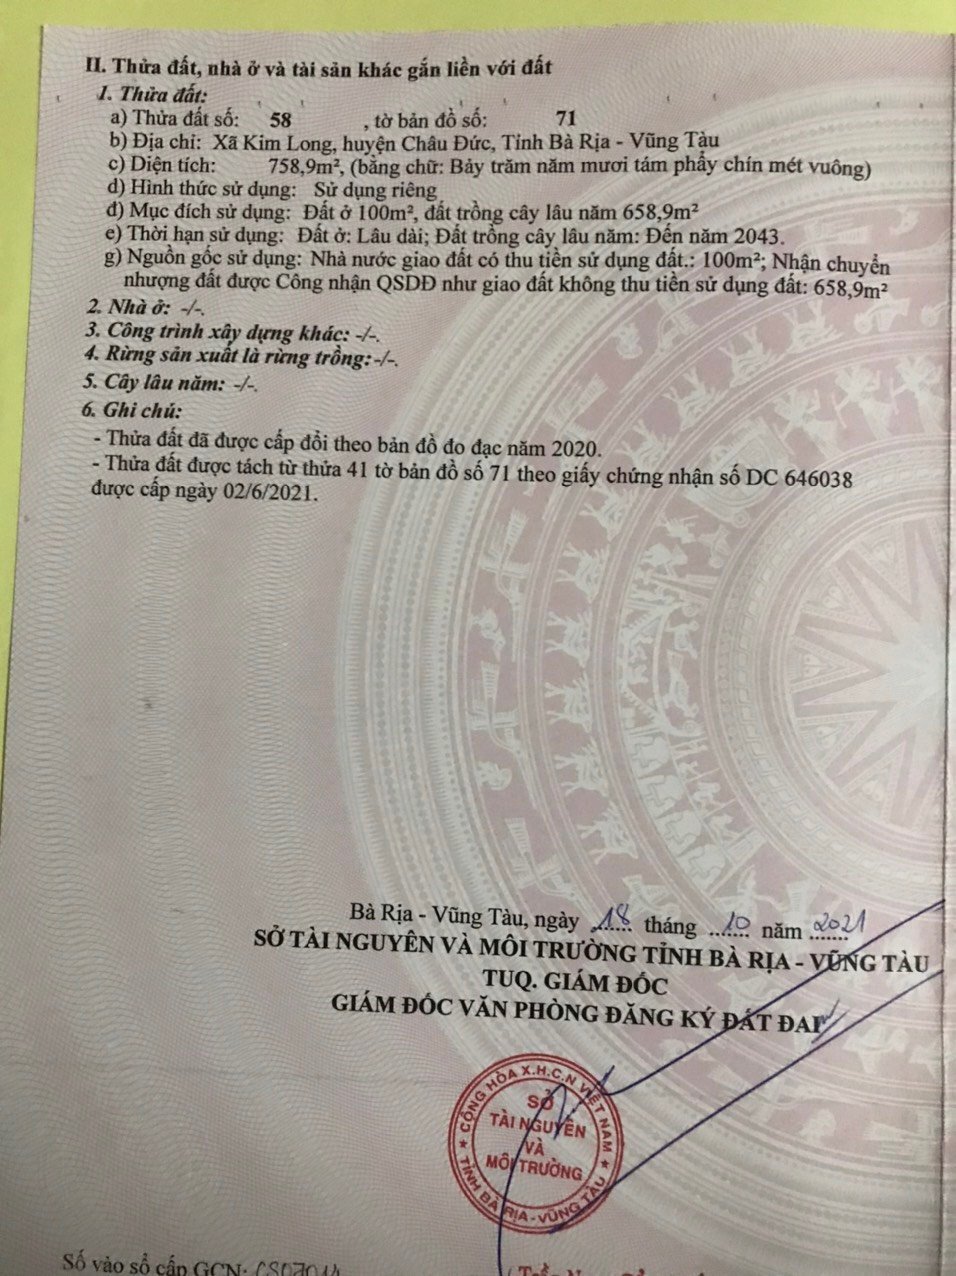 II. Thửa đất, nhà ở và tài sản khác gắn liền với đất
1. Thửa đất:
a) Thửa đất số: 58 , tờ bản đồ số: 71
b) Địa chỉ: Xã Kim Long, huyện Châu Đức, Tỉnh Bà Rịa - Vũng Tàu
c) Diện tích: 758,9m², (bằng chữ: Bảy trăm năm mươi tám phẩy chín mét vuông)
d) Hình thức sử dụng: Sử dụng riêng
đ) Mục đích sử dụng: Đất ở 100m², đất trồng cây lâu năm 658,9m²
e) Thời hạn sử dụng: Đất ở: Lâu dài; Đất trồng cây lâu năm: Đến năm 2043.
g) Nguồn gốc sử dụng: Nhà nước giao đất có thu tiền sử dụng đất.: 100m²; Nhận chuyển
nhượng đất được Công nhận QSDĐ như giao đất không thu tiền sử dụng đất: 658,9m²
2. Nhà ở: -/-.
3. Công trình xây dựng khác: -/-.
4. Rừng sản xuất là rừng trồng: -/-.
5. Cây lâu năm: -/-.
6. Ghi chú:
- Thửa đất đã được cấp đổi theo bản đồ đo đạc năm 2020.
- Thửa đất được tách từ thửa 41 tờ bản đồ số 71 theo giấy chứng nhận số DC 646038
được cấp ngày 02/6/2021.
Bà Rịa - Vũng Tàu, ngày 18 tháng 10 năm 2021
SỞ TÀI NGUYÊN VÀ MÔI TRƯỜNG TỈNH BÀ RỊA - VŨNG TÀU
TUQ. GIÁM ĐỐC
GIÁM ĐỐC VĂN PHÒNG ĐĂNG KÝ ĐẤT ĐAI
CỘNG HÒA X.H.C.N VIỆT NAM
SỞ
TÀI NGUYÊN
VÀ
MÔI TRƯỜNG
TỈNH BÀ RỊA - VŨNG TÀU
Số vào sổ cấp GCN: